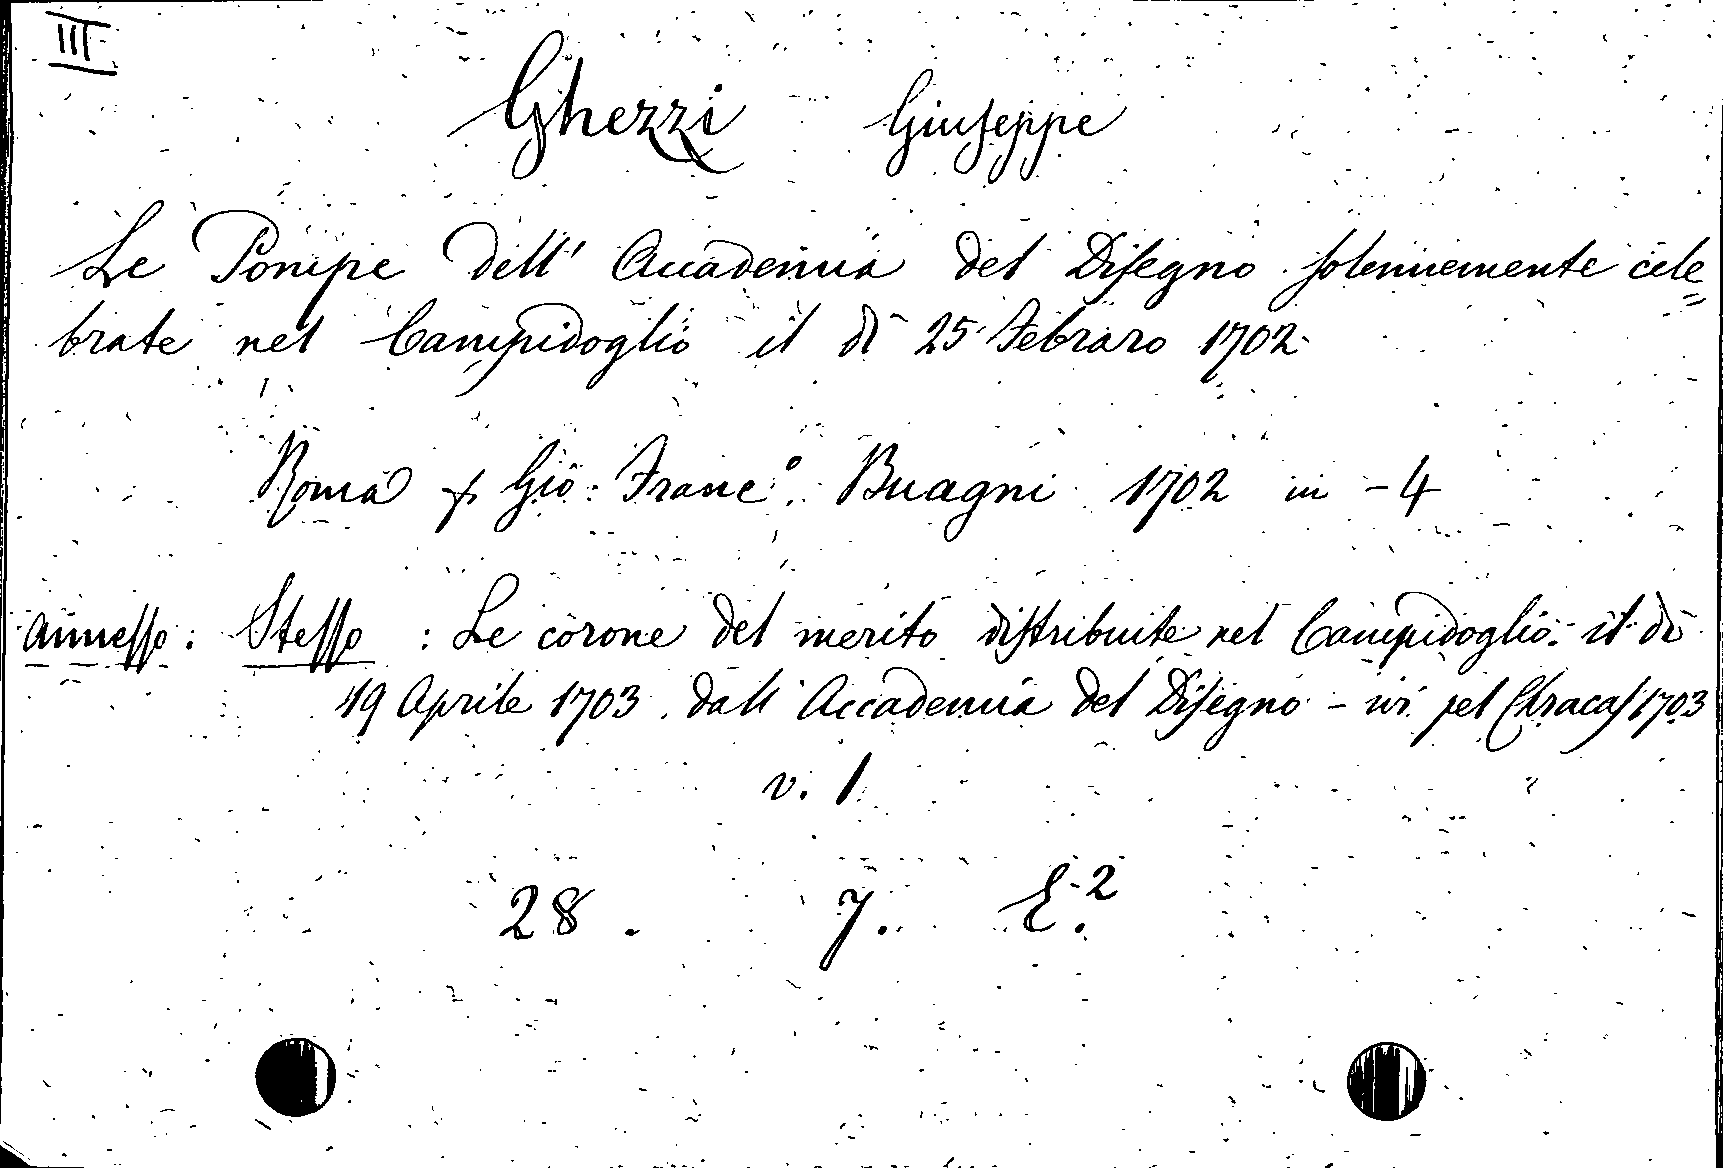 III
Ghezzi Giuseppe
Le Pompe dell' Accademia del Disegno solennemente cele=
brate nel Campidoglio il dì 25 Febraro 1702
Roma p. Gio: Franc.º Buagni 1702 in -4
annesso: Stesso: Le corone del merito distribuite nel Campidoglio il dì
19 Aprile 1703. dall' Accademia del Disegno - ivi pel Chracas 1703
v. 1
28. 7. E.2